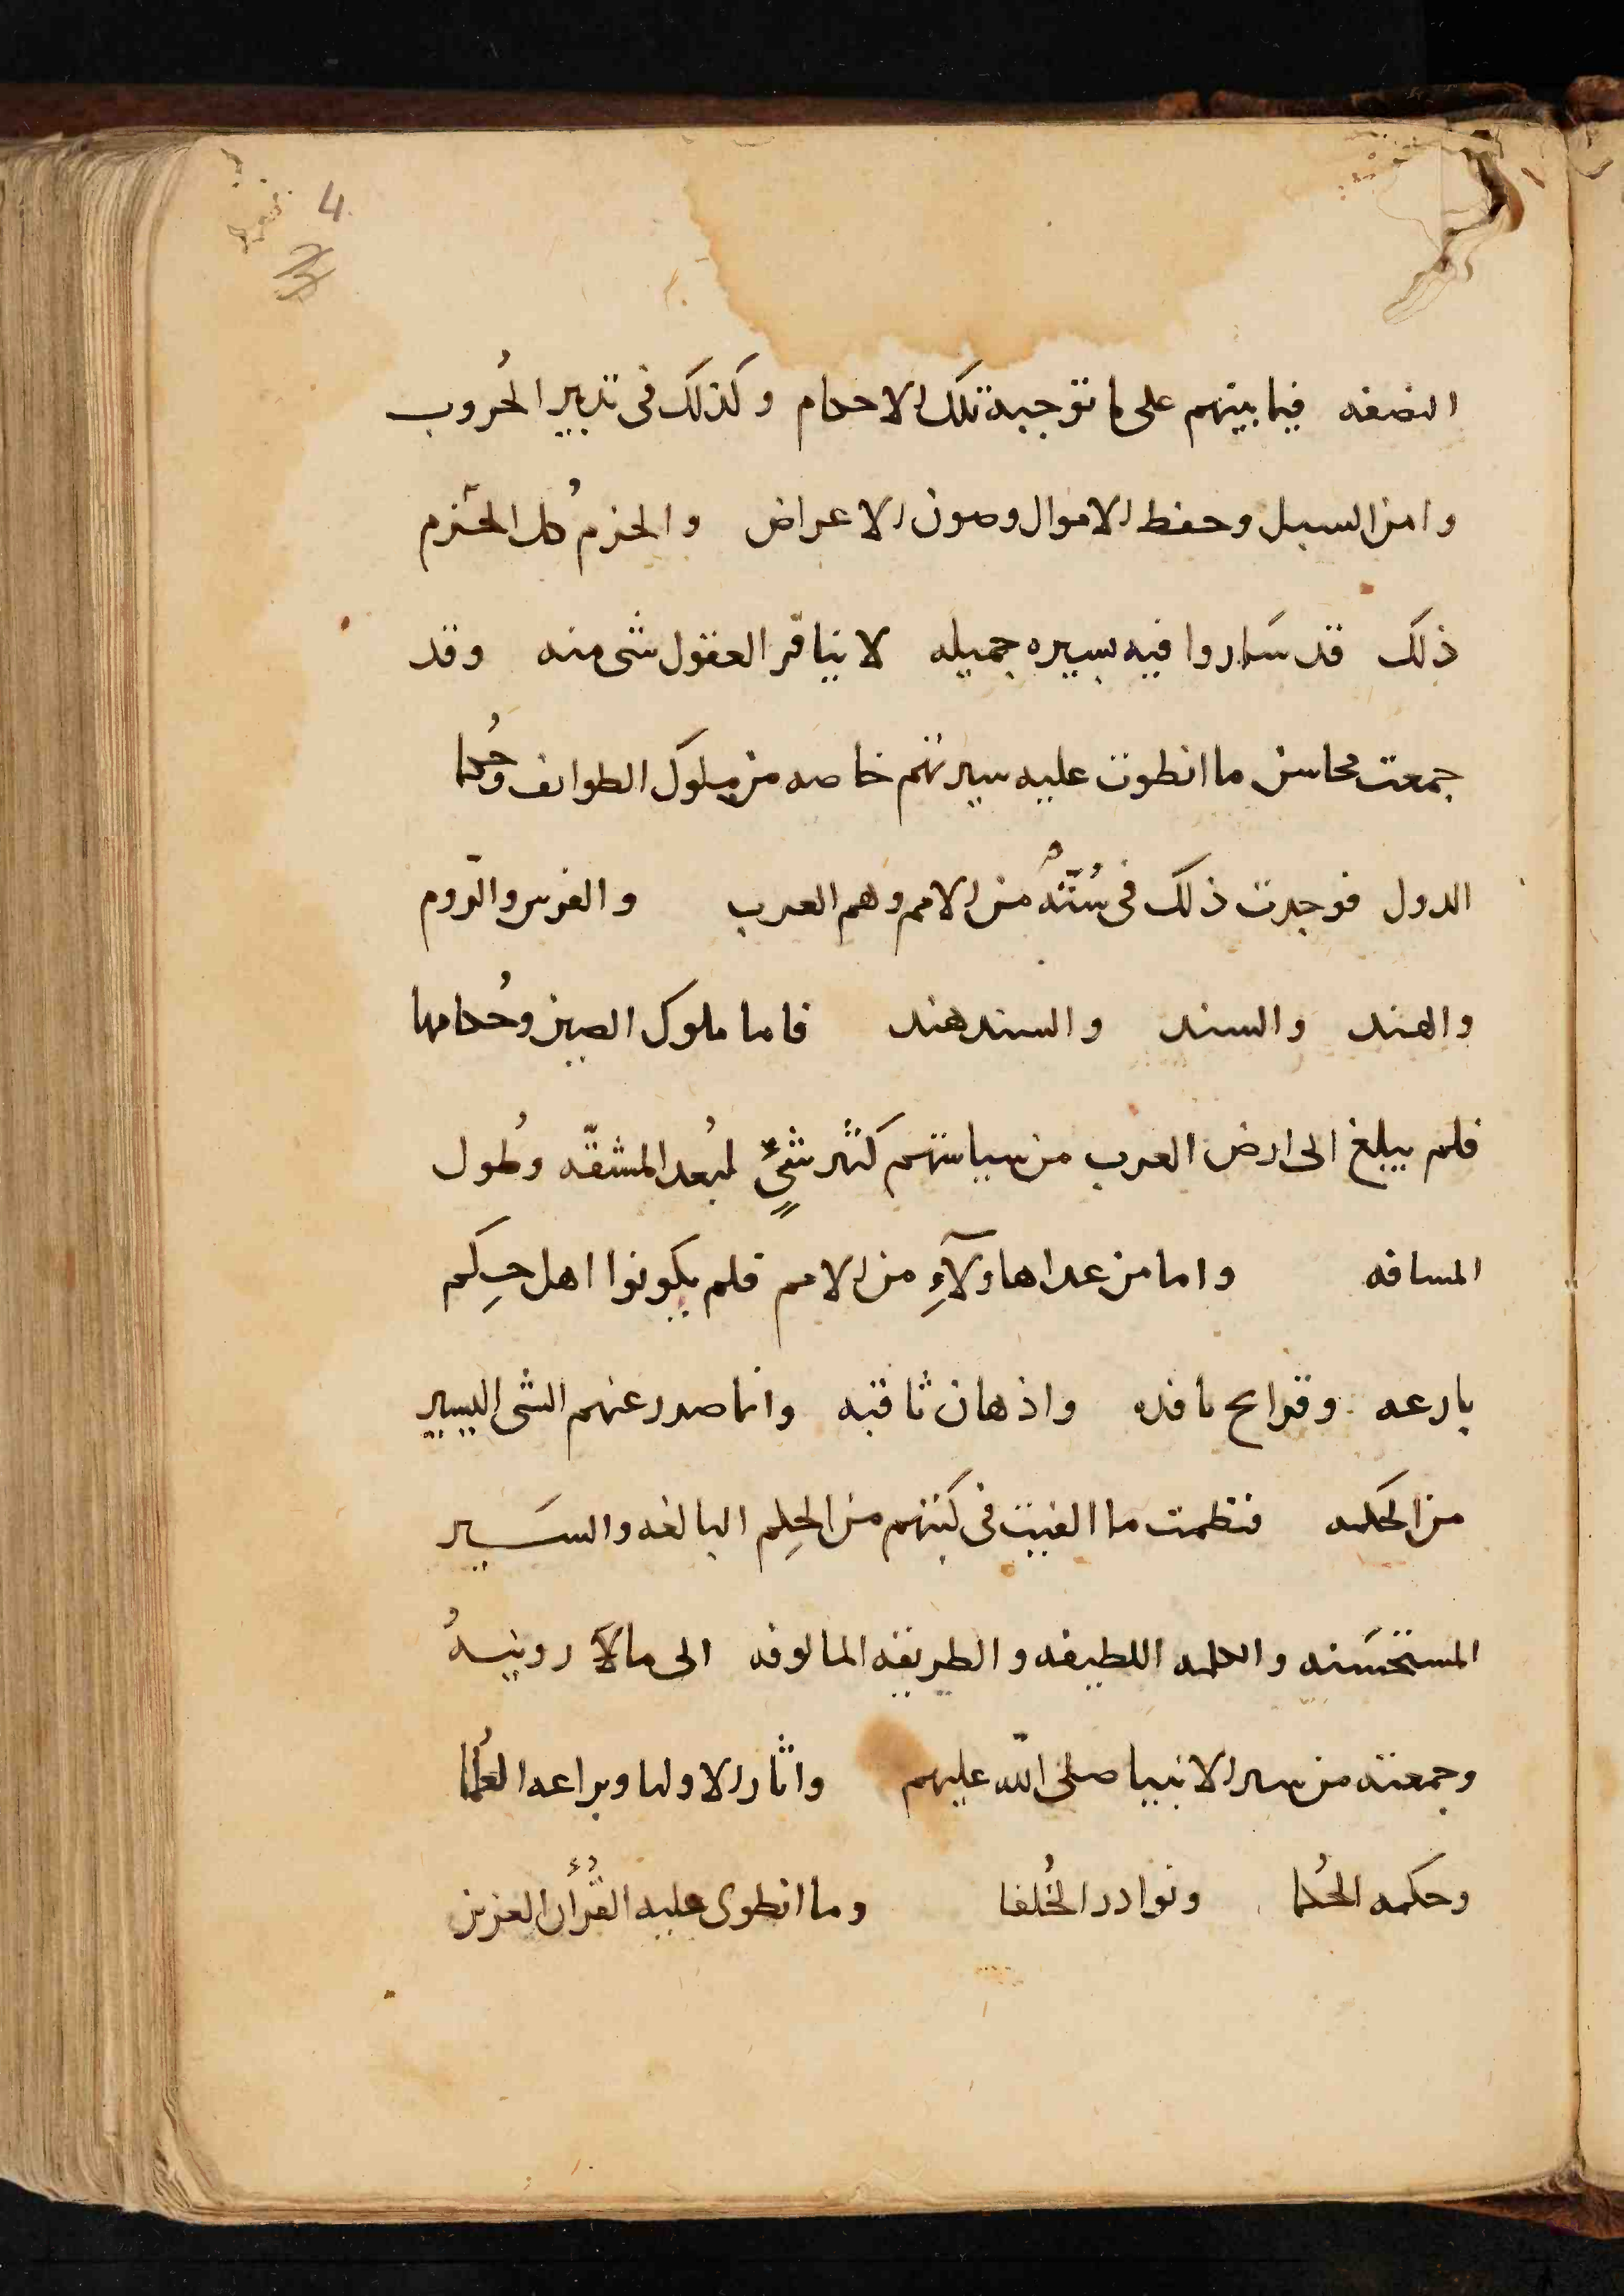 4
3
النصفه فيما بينهم على ما توجبه تلك الاحكام وكذلك فى تدبير الحُروب
وامن السبل وحفظ الاموال وصون الاعراض والحزم كُل الحزم
ذلك قد ساروا فيه سيره جميله لا ينافر العقول شى منه وقد
جمعت محاسن ما انطوت عليه سيرتهم خاصه من ملوك الطوايف وحُكما
الدول فوجدت ذلك فى ستّهُ من الامم وهم العرب والفرس والرّوم
والهند والسند والسندهند فاما ملوك الصين وحُكامها
فلم يبلغ الى ارض العرب من سياستهم كثير شيءٍ لبُعد المشقّه وطُول
المسافه واما من عدا هاولآءِ من الامم فلم يكونوا اهل حِكم
بارعه وقرايح نافذه واذهان ثاقبه وانما صدر عنهم الشى اليسير
من الحكمه فنظمت ما الفيت فى كتبهم من الحِكم البالغه والسير
المستحسنه والكلمه اللطيفه والطريقه المالوفه الى مالآ رويتهُ
وجمعته من سير الانبيا صلى اللّه عليهم واثار الاوليا وبراعه العُلما
وحكمه الحُكما ونوادر الخُلفا وما انطوى عليه القُرأن العزيز